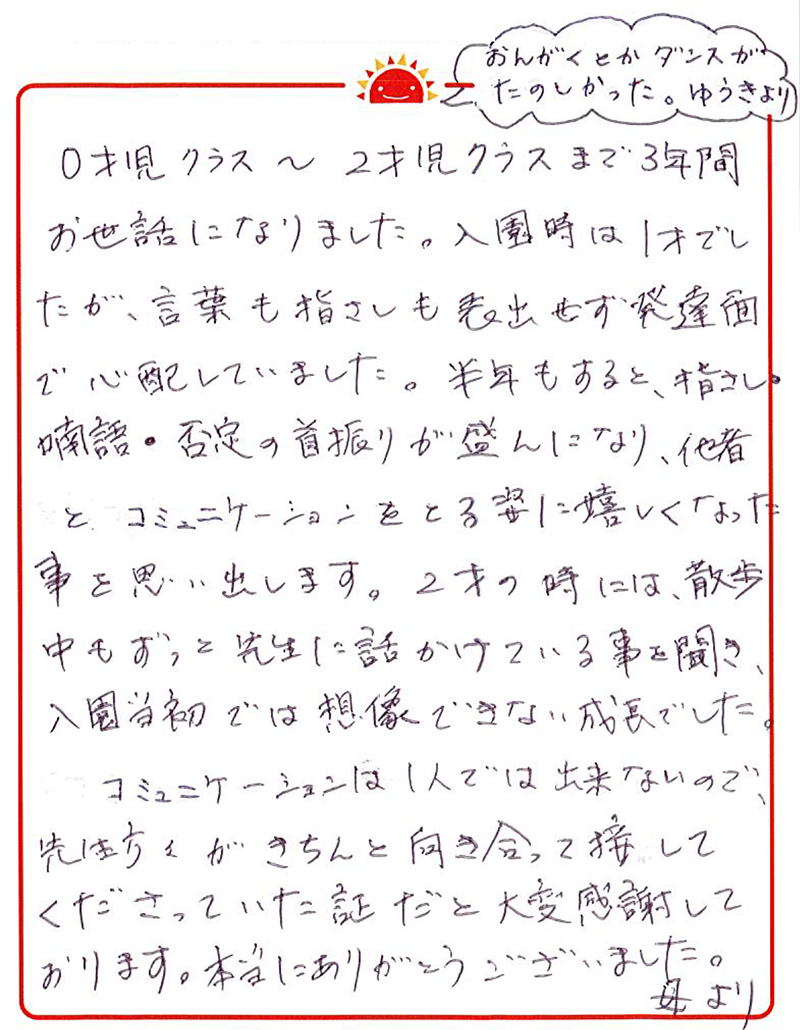 おんがくとかダンスが
たのしかった。ゆうきより
0才児クラス～2才児クラスまで3年間
お世話になりました。入園時は1才でし
たが、言葉も指さしも表出せず発達面
で心配していました。半年もすると、指さし・
喃語・否定の首振りが盛んになり、他者
とコミュニケーションをとる姿に嬉しくなった
事を思い出します。2才の時には、散歩
中もずっと先生に話かけている事を聞き、
入園当初では想像できない成長でした。
コミュニケーションは1人では出来ないので、
先生方々がきちんと向き合って接して
くださっていた証だと大変感謝して
おります。本当にありがとうございました。
母より